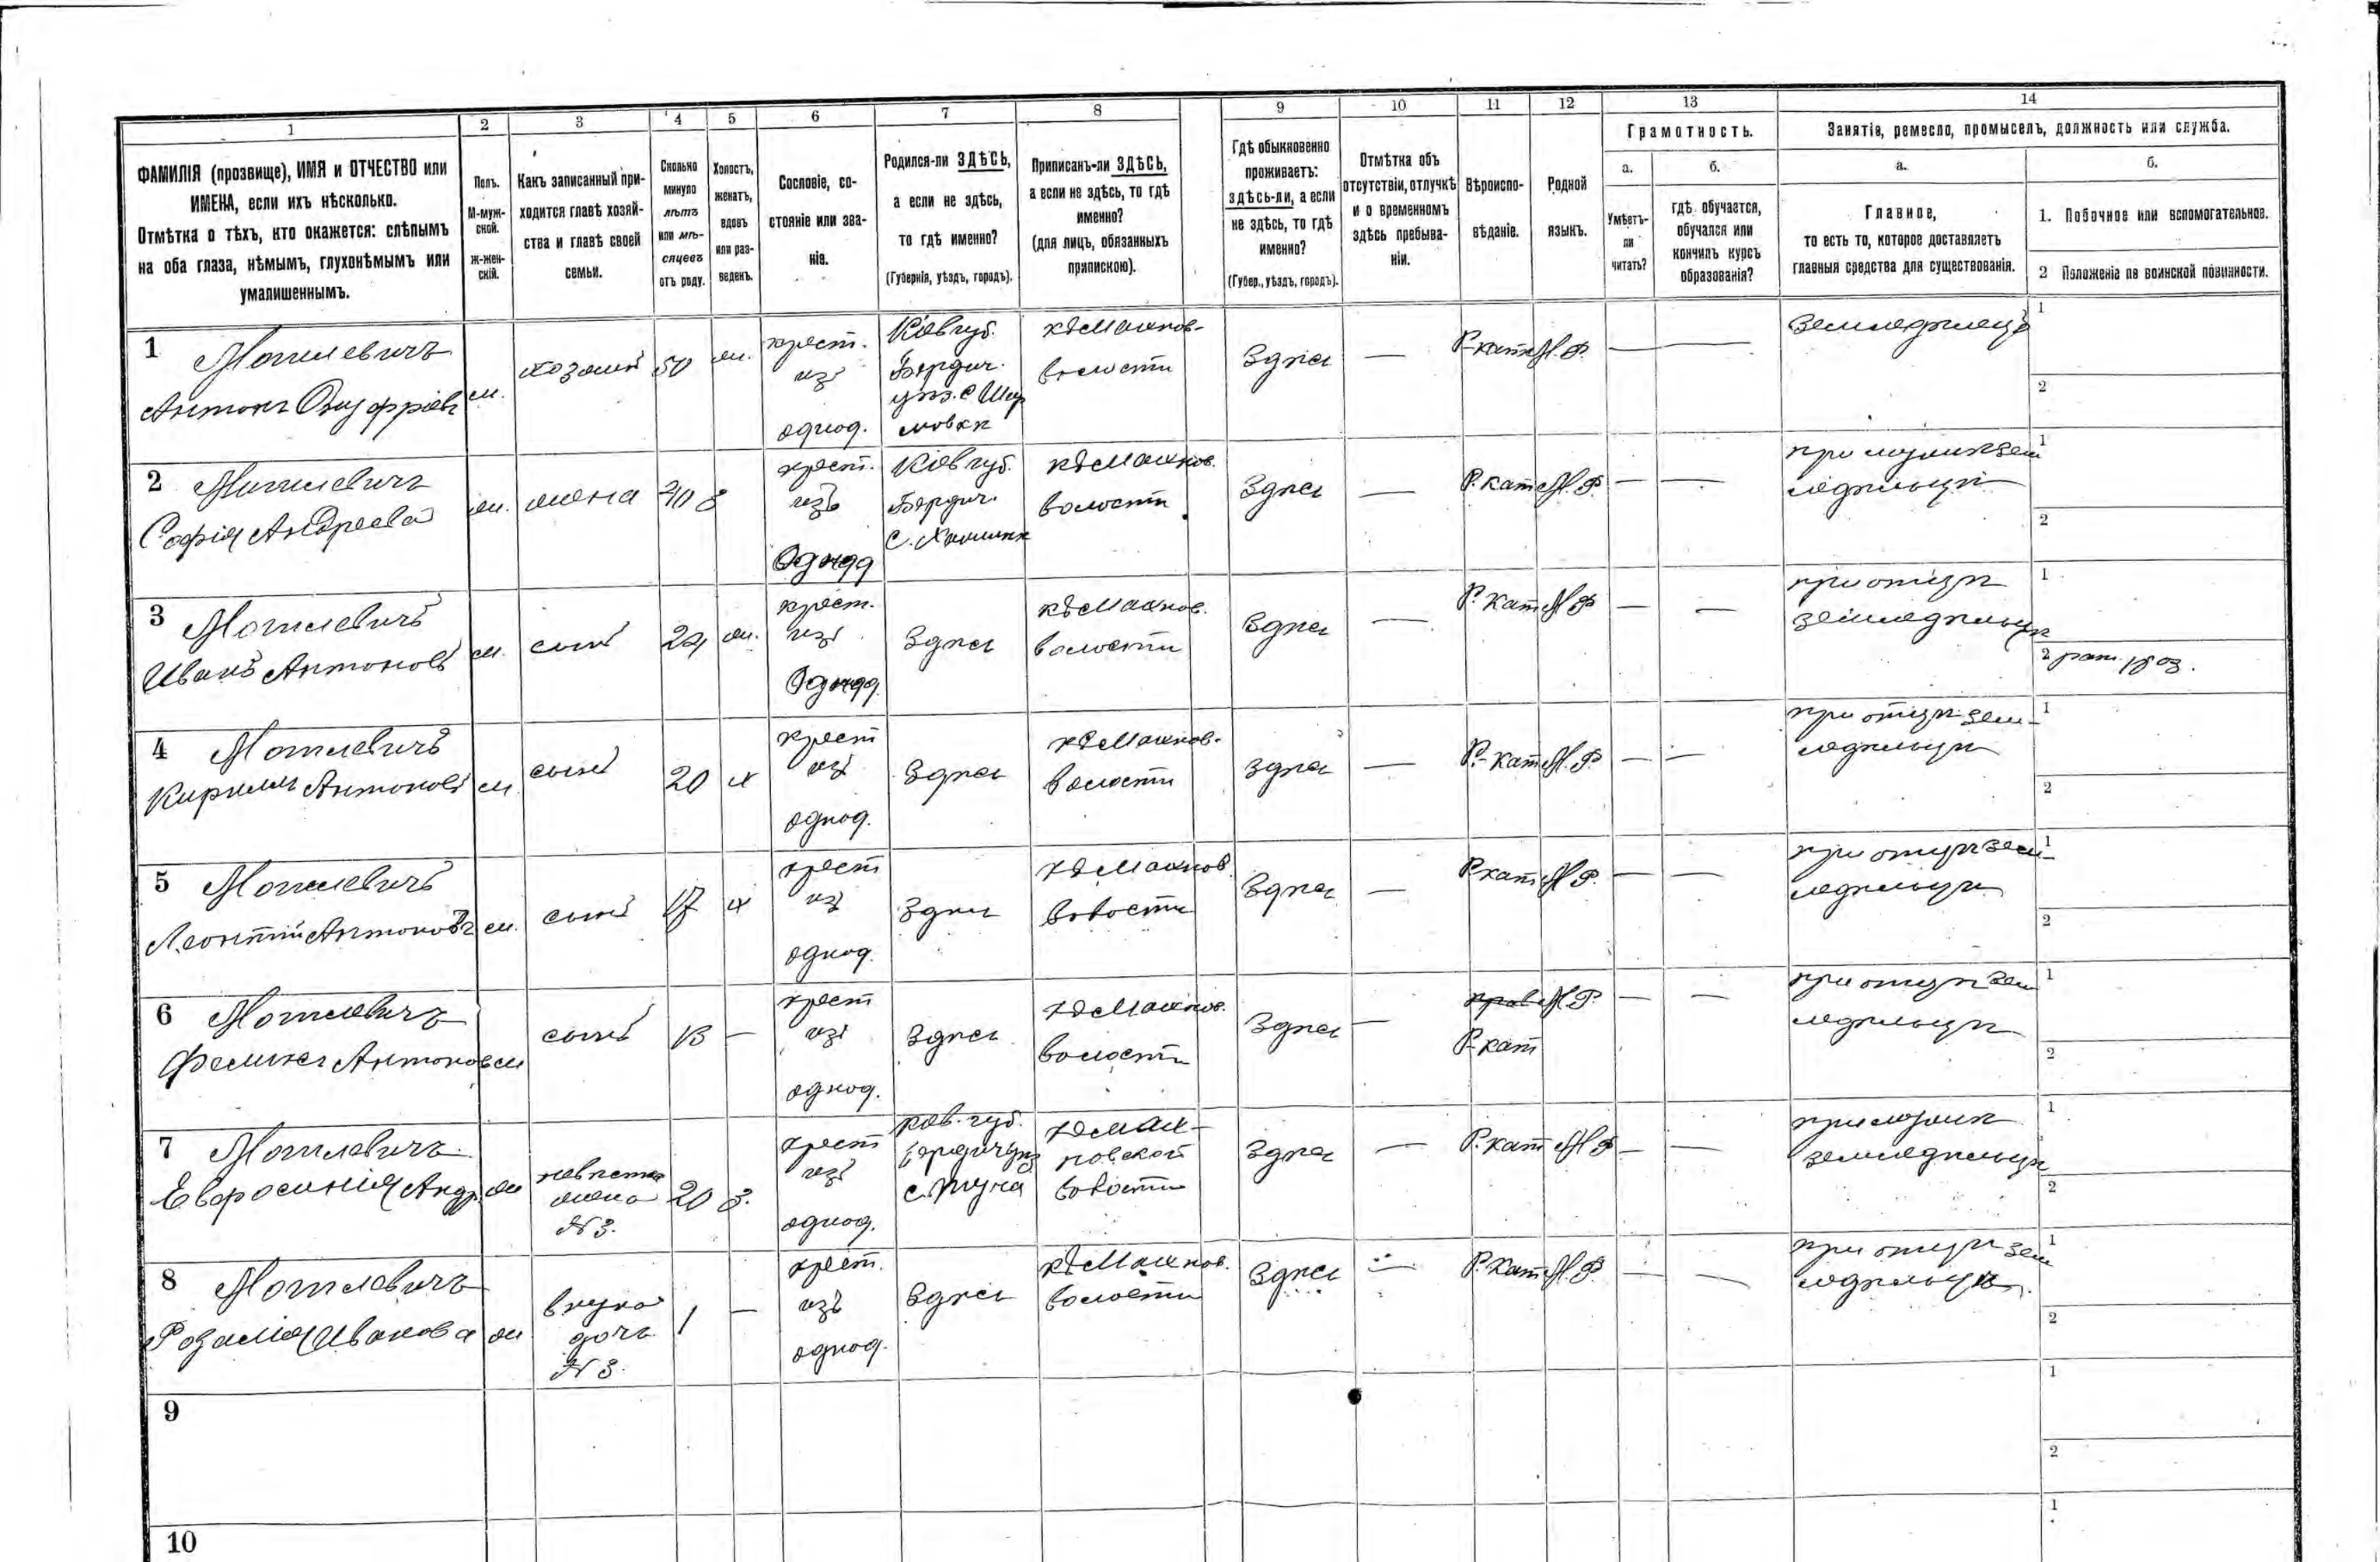 1 2 3 4 5 6 7 8 9 10 11 12 13 14
ФАМИЛІЯ (прозвище), ИМЯ и ОТЧЕСТВО или
ИМЕНА, если ихъ нѣсколько.
Отмѣтка о тѣхъ, кто окажется: слѣпымъ
на оба глаза, нѣмымъ, глухонѣмымъ или
умалишеннымъ.
Полъ.
М-муж-
ской.
ж-жен-
скій.
Какъ записанный при-
ходится главѣ хозяй-
ства и главѣ своей
семьи.
Сколько
минуло
лѣтъ
или мѣ-
сяцевъ
отъ роду.
Холостъ,
женатъ,
вдовъ
или раз-
веденъ.
Сословіе, со-
стояніе или зва-
ніе.
Родился-ли ЗДѢСЬ,
а если не здѣсь,
то гдѣ именно?
(Губернія, уѣздъ, городъ).
Приписанъ-ли ЗДѢСЬ,
а если не здѣсь, то гдѣ
именно?
(для лицъ, обязанныхъ
припискою).
Гдѣ обыкновенно
проживаетъ:
здѣсь-ли, а если
не здѣсь, то гдѣ
именно?
(Губер., уѣздъ, городъ).
Отмѣтка объ
отсутствіи, отлучкѣ
и о временномъ
здѣсь пребыва-
ніи.
Вѣроиспо-
вѣданіе.
Родной
языкъ.
Грамотность.
а.
Умѣетъ-
ли
читать?
б.
гдѣ обучается,
обучался или
кончилъ курсъ
образованія?
Занятіе, ремесло, промыселъ, должность или служба.
а.
Главное,
то есть то, которое доставляетъ
главныя средства для существованія.
б.
1. Побочное или вспомогательное.
2 Положеніе по воинской повинности.
1 Мотилевичъ
Антонъ Онуфріевъ
м.
хозяинъ
50
ж.
крест.
изъ
однод.
Кіев губ.
Бердич.
уѣз. с
мовкѣ
къ Махнов-
волости
Здѣсь
—
Р-кат
—
—
Земледѣлецъ
1
2
2 Мотилевичъ
Софія Андреева
ж.
жена
40
З
крест.
изъ
Однод
Кіев губ.
Бердич.
къ Махнов.
волости
Здѣсь
—
Р. кат
—
—
при мужѣ зем
ледѣльцѣ
1
2
3 Мотилевичъ
Иванъ Антоновъ
м.
сынъ
24
ж.
крест.
изъ
Однод
Здѣсь
къ Махнов.
волости
Здѣсь
—
Р. Кат
—
—
при отцѣ
земледѣльцѣ
1
2
4 Мотилевичъ
Кирилъ Антоновъ
м.
сынъ
20
х
крест
изъ
однод.
Здѣсь
къ Махнов-
волости
Здѣсь
—
Р.-Кат
—
—
при отцѣ зем-
ледѣльцѣ
1
2
5 Мотилевичъ
Леонтій Антоновъ
м.
сынъ
17
х
крест
изъ
однод.
Здѣсь
къ Махнов
волости
Здѣсь
—
Р.кат
—
—
при отцѣ зем-
ледѣльцѣ
1
2
6 Мотилевичъ
Феликсъ Антонов
м
сынъ
13
—
крест
изъ
однод.
Здѣсь
къ Махнов.
волости
Здѣсь
—
прав
Р-кат
—
—
при отцѣ зем
ледѣльцѣ
1
2
7 Мотилевичъ
Евфросинія Андр.
ж
невѣстка
жена
№ 3.
20
З.
крест
изъ
однод.
Кіев. губ.
Бердич уѣз
къ Мах-
новской
волости
Здѣсь
—
Р.кат
—
—
при мужѣ
земледѣльцѣ
1
2
8 Мотилевичъ
Розалія Иванова
ж
внука
дочь
№ 3.
1
—
крест.
изъ
однод.
Здѣсь
къ Махнов.
волости
Здѣсь
—
Р.Кат
—
—
при отцѣ зем
ледѣльцѣ.
1
2
9
1
2
10
1